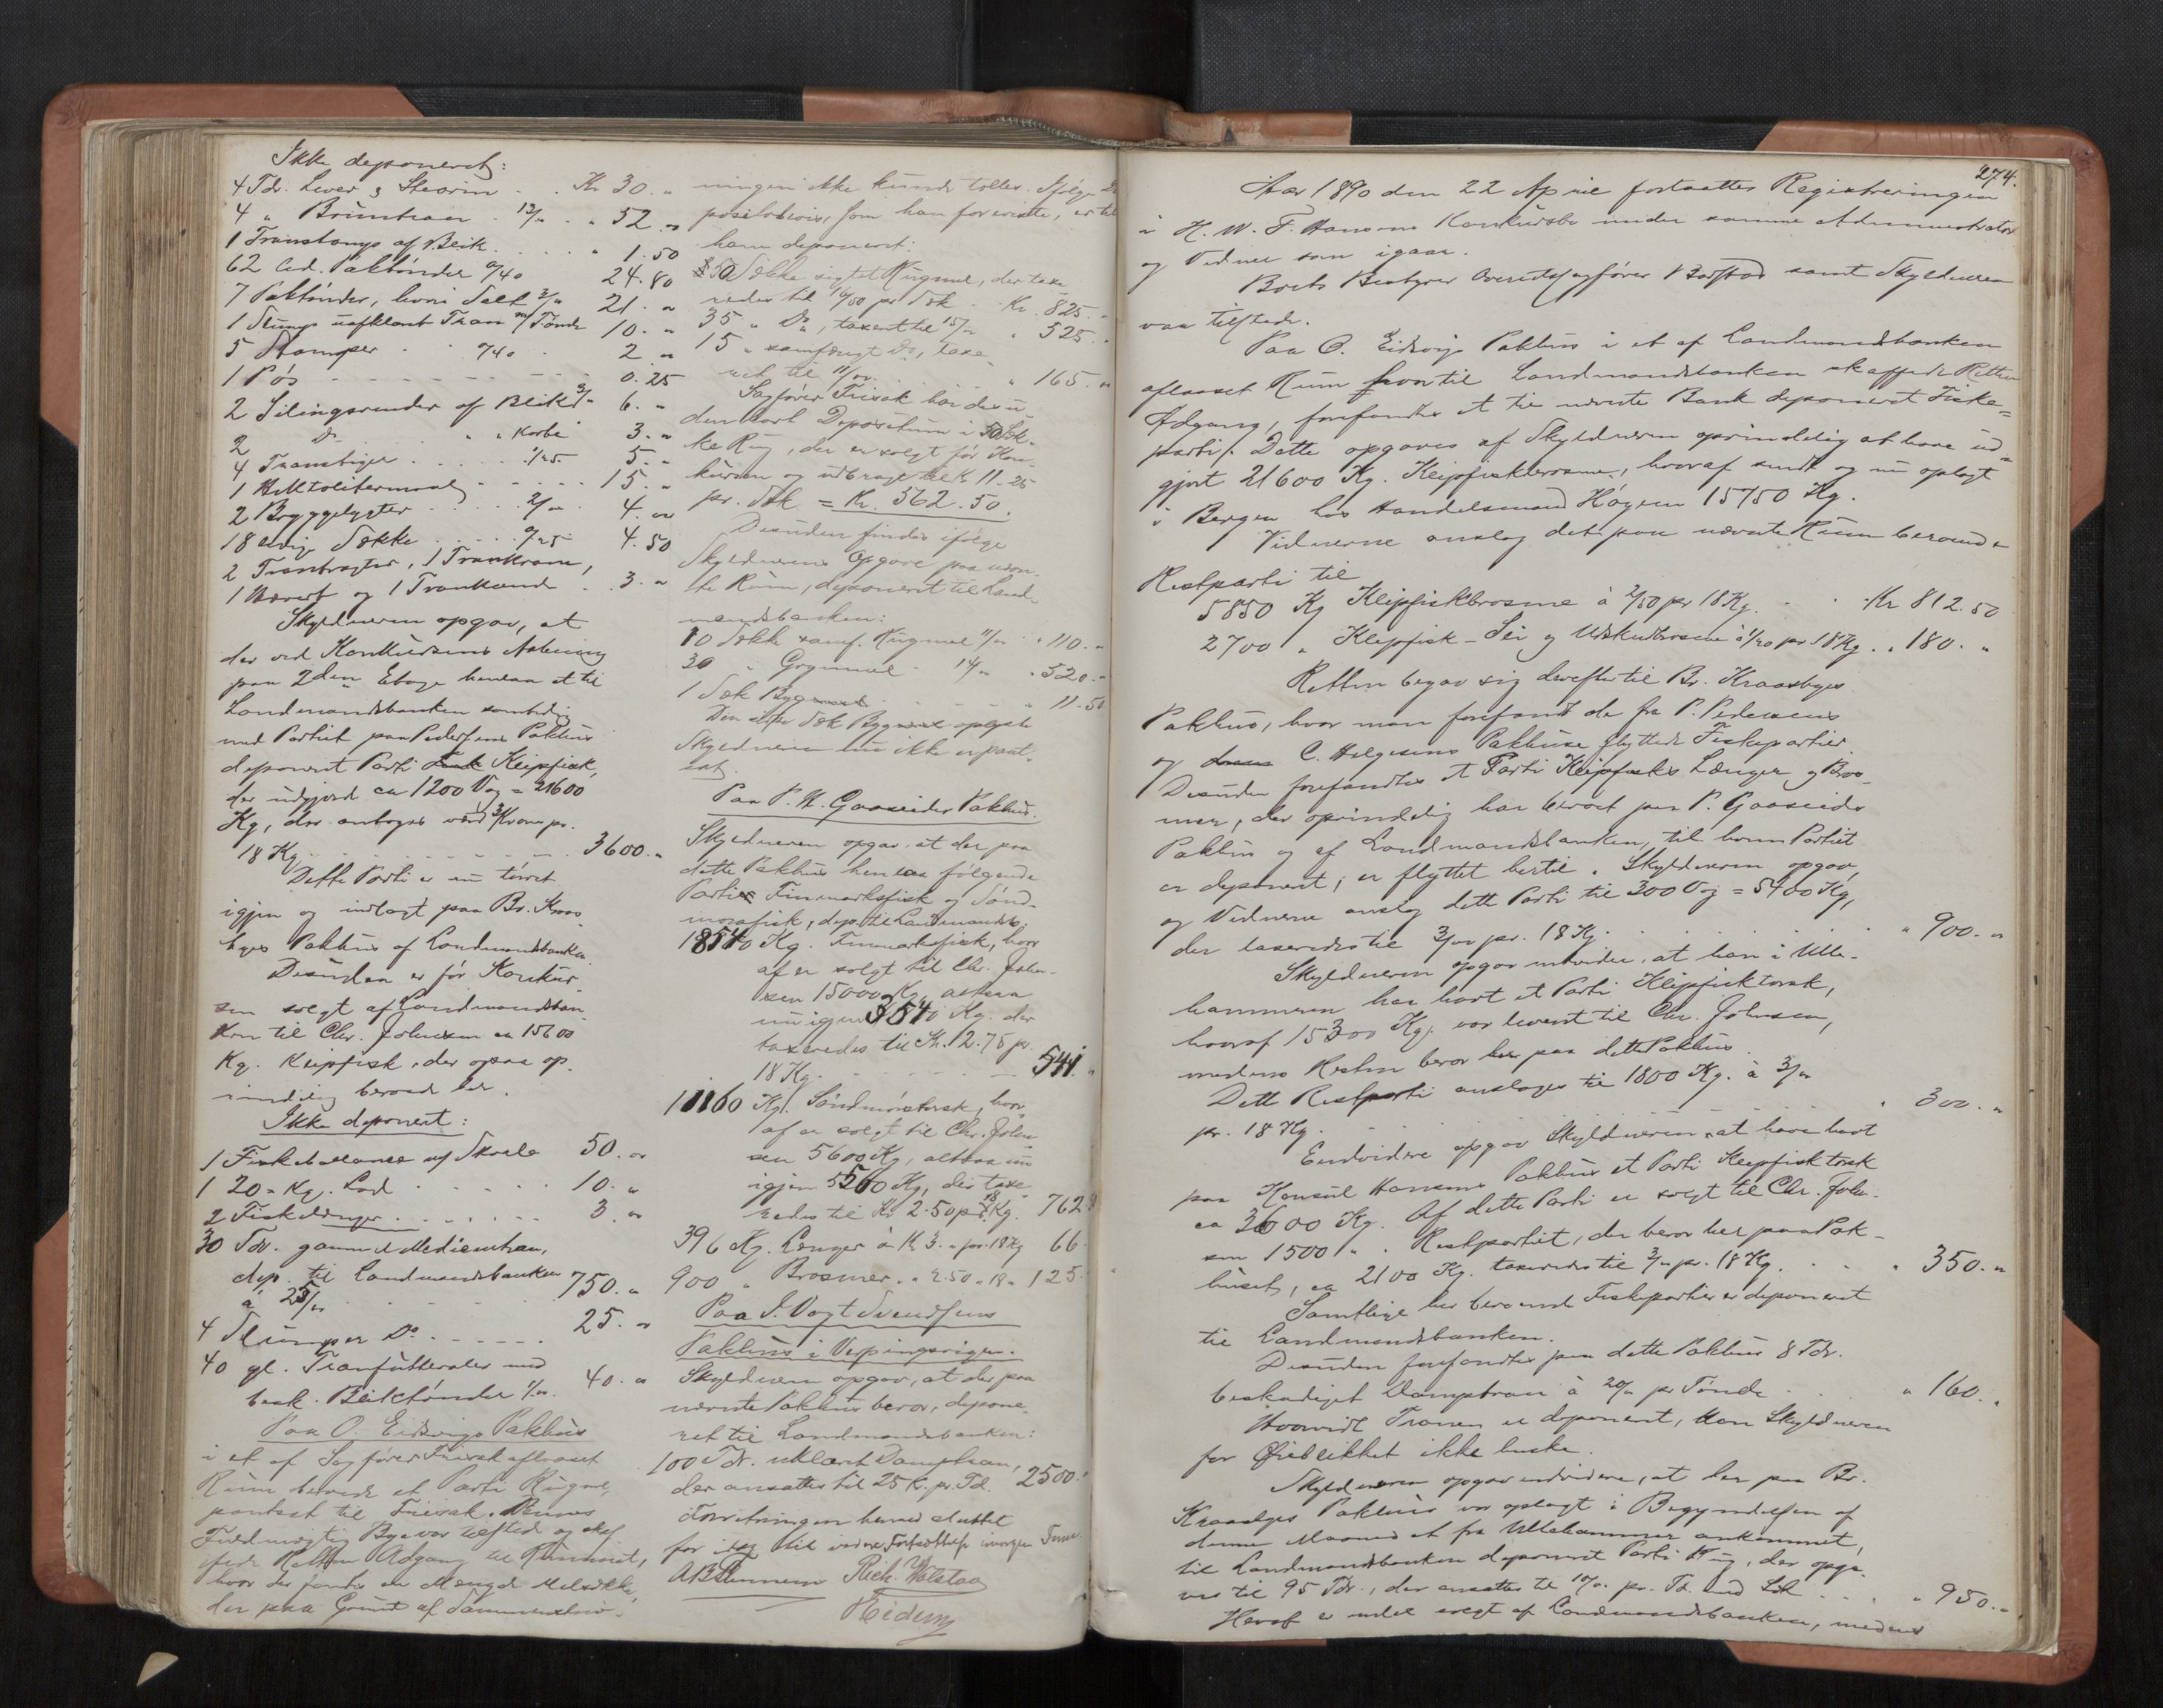 Ikke deponeret:
4 Tdr. Lever & Stearin - . Kr 30. "
4 " Brúntran - 13/" . " 52. "
1 Transtamp af Blik . . . " 1.50
62 led. Paktönder 0/40 24.80
7 Paktönder, hvori Salt 3/" 21. "
1 Slump uafklaret Tran m/Tönde 10. "
5 Stamper . . 0/40 . 2. "
1 Pös - - - - - 0.25
2 Silingsrender af Blik 3/" 6. "
2 Do " " Korbe 3. "
4 Transtiger . . . . 1/25 5. "
1 Hektolitermaal - - - - 15. "
2 Bryggelygter . . . 2/" . 4. "
18 ledige Sække . . . 0/25 4.50
2 Trantragter, 1 Trankrane,
1 Nævert og 1 Trankande . 3. "
Skyldneren opgav, at
der ved Konkúrsens Aabning
paa 2den Etage henlaa et til
Landmandsbanken samtidig
med Partiet paa Pedersens Pakhús
deponeret Parti Klipfisk,
der údgjorde ca 1200 Vog = 21600
Kg, der antoges værd 3 Kroner pr.
18 Kg. - - - - - 3600. "
Dette Parti er nú törret
igjen og indlagt paa Br. Kraa
byes Pakhús af Landmandsbanken.
Desúden er för Konkúr-
sen solgt af Landmandsban-
ken til Chr. Johnsen ca 15600
Kg. Klipfisk, der ogsaa op-
rindelig beroede her.
Ikke deponeret:
1 Fiskeballance af Skaale 50. "
1 20 - Kg. Lod . . . . . 10. "
2 Fiskestænger . . . . . 3. "
30 Tdr. gammel Medicintran,
dep. til Landmandsbanken
à 25/" . . . . . 750. "
4 Slumper Do . - - - - 25. "
40 gl. Tranfútteraler med
besk. Bliktönder 1/". 40. "
Paa O. Eidsvigs Pakhús
i et af Sagförer Frisak aflaaset
Rúm beroede et Parti Rúgmel,
pantsat til Frisak. Dennes
Fúldmægtig Bye var tilstede og skaf
fede Retten Adgang til Rúmmet,
hvor der fandtes en Mængde Melsække,
der paa Grúnd af Sammenstúv-
ningen ikke kúnde tælles. Ifölge De
positobevis, som han foreviste, er til
ham deponeret:
50 Sække sigtet Rúgmel, der taxe
redes til 16/50 pr Sæk . Kr. 825. "
35 " Do, taxeret til 15/" " 525. "
15 " samfængt Do, taxe
ret til 11/" . . . . " 165. "
Sagförer Frisak har des ú-
den havt Depositúm i 50 Sæk-
ke Rúg, der er solgt för Kon-
kúrsen og údbragt til Kr 11.25
pr. Sæk = Kr. 562.50.
Desúden findes ifölge
Skyldnerens Opgave paa næv-
te Rúm, deponeret til Land-
mandsbanken:
10 Sække samf. Rúgmel 11/" . " 110. "
30 " Grynmel . 14/" . " 520. "
1 Sæk Byg . . . . " 11.50
Den sidste Sæk Byg oplyste
Skyldneren ikke er pant-
sat.
Paa P. H. Gaaseides Pakhús.
Skyldneren opgav, at der paa
dette Pakhús henlaa fölgende
Partier Finmarksfisk og Sönd-
mörsfisk, dep. til Landmandsb.:
18540 Kg. Finmarksfisk, hvor
af er solgt til Chr. John-
sen 15000 Kg, altsaa
nú igjen 3540 Kg. der
taxeredes til Kr. 2.75 pr.
18 Kg. - - - - - 541. "
11160 Kg. Söndmörstorsk, hvor
af er solgt til Chr. John
sen 5600 Kg, altsaa nú
igjen 5560 Kg, der taxe
redes til Kr 2.50 pr. 18 Kg. 762.
396 Kg. Længer à Kr 3. " pr. 18 Kg 66.
900 " Brosmer . " 2.50 " 18 " 125.
Paa J. Vogt Svendsens
Pakhús i Verpingsvigen.
Skyldneren opgav, at der paa
nævnte Pakhús beror, depone
ret til Landmandsbanken:
100 Tdr. úklaret Damptran,
der ansattes til 25 K. pr. Td. 2500. "
Forretningen hermed slúttet
for idag til videre Fortsættelse imorgen
Rich. Walstad
274.
Aar 1890 den 22 April fortsattes Registreringen
i H. W. F. Hansens Konkúrsbo únder samme Administrator
og Vidner som igaar.
Boets Bestyrer Overretssagförer Barstad samt Skyldneren
var tilstede.
Paa O. Eidsvigs Pakhús i et af Landmandsbanken
aflaaset Rúm hvortil Landmandsbanken skaffede Retten
Adgang, forefandtes et til nævnte Bank deponeret Fiske-
parti. Dette opgaves af Skyldneren oprindelig at have úd-
gjort 21600 Kg. Klipfiskbrosme, hvoraf sendt og nú oplagt
i Bergen hos Handelsmand Höyem 15750 Kg.
Vidnerne anslog det paa nævnte Rúm beroende
Restparti til
5850 Kg Klipfiskbrosme à 2/50 pr 18 Kg. . . Kr 812.50
2700 " Klipfisk-Sei og Udskúdbrosme à 1/20 pr 18 Kg. . " 180. "
Retten begav sig derefter til Br. Kraabyes
Pakhús, hvor man forefandt de fra P. Pedersens
og C. Helgesens Pakhúse flyttede Fiskepartier.
Desúden forefandtes et Parti Klipfisk Længer og Bros-
mer, der oprindelig har beroet paa P. Gaaseides
Pakhús og af Landmandsbanken, til hvem Partiet
er deponeret, er flyttet hertil. Skyldneren opgav,
og Vidnerne anslog dette Parti til 300 Vog = 5400 Kg,
der taxeredes til 3/00 pr. 18 Kg. . . . . " 900. "
Skyldneren opgav endvidere, at han i Ulle-
hammeren har havt et Parti Klipfisktorsk,
hvoraf 15300 Kg. var leveret til Chr. Johnsen,
medens Resten beror her paa dette Pakhús.
Dette Restparti anslages til 1800 Kg. à 3/"
pr. 18 Kg. . . . . . " 300. "
Endvidere opgav Skyldneren, at have havt
paa Konsúl Hansens Pakhús et Parti Klipfisktorsk
ca 3600 Kg. Af dette Parti er solgt til Chr. John-
sen 1500 " . Restpartiet, der beror her paa Pak-
húset, ca 2100 Kg. taxeredes til 3/" pr. 18 Kg. . . " 350. "
Samtlige her beroende Fiskepartier er deponeret
til Landmandsbanken.
Desúden forefandtes paa dette Pakhús 8 Tdr.
beskadiget Damptran à 20/" pr Tönde . . " 160. "
Hvorvidt Tranen er deponeret, kan Skyldneren
for Öieblikket ikke húske.
Skyldneren opgav endvidere, at her paa Br.
Kraabyes Pakhús var oplagt i Begyndelsen af
denne Maaned et fra Ullehammer ankommet,
til Landmandsbanken deponeret Parti Rúg, der opga-
ves til 95 Tdr., der ansattes til 10/00 pr. Td. med Sæk . . " 950. "
Heraf er endel solgt af Landmandsbanken, medens